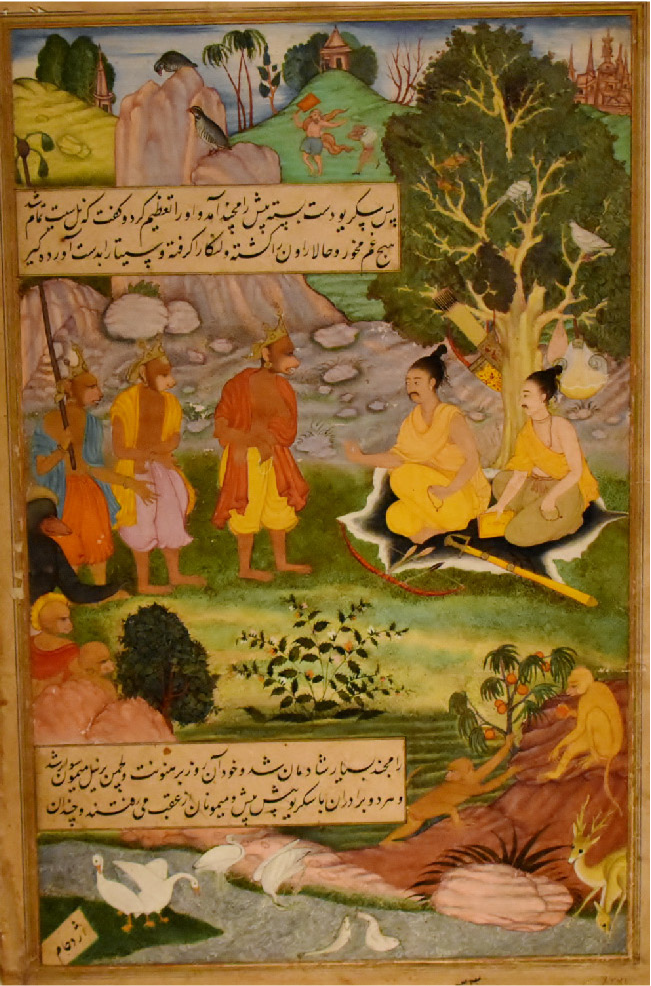 پس سکریو دست بسته پیش رامچند آمد و او را تعظیم کرد و گفت که بل ست تمام شد
هیچ غم مخور و حالا راون را کشته و لنکا را گرفته و سیتا را بدست آورده گیر
رامچند بسیار شادمان شد و خود آن روز بر هنونت و لچمن بر نیل میمون سوار شد
و هر دو برادران با سکریو پیش پیش و میمونان از عقب می رفتند و چندان